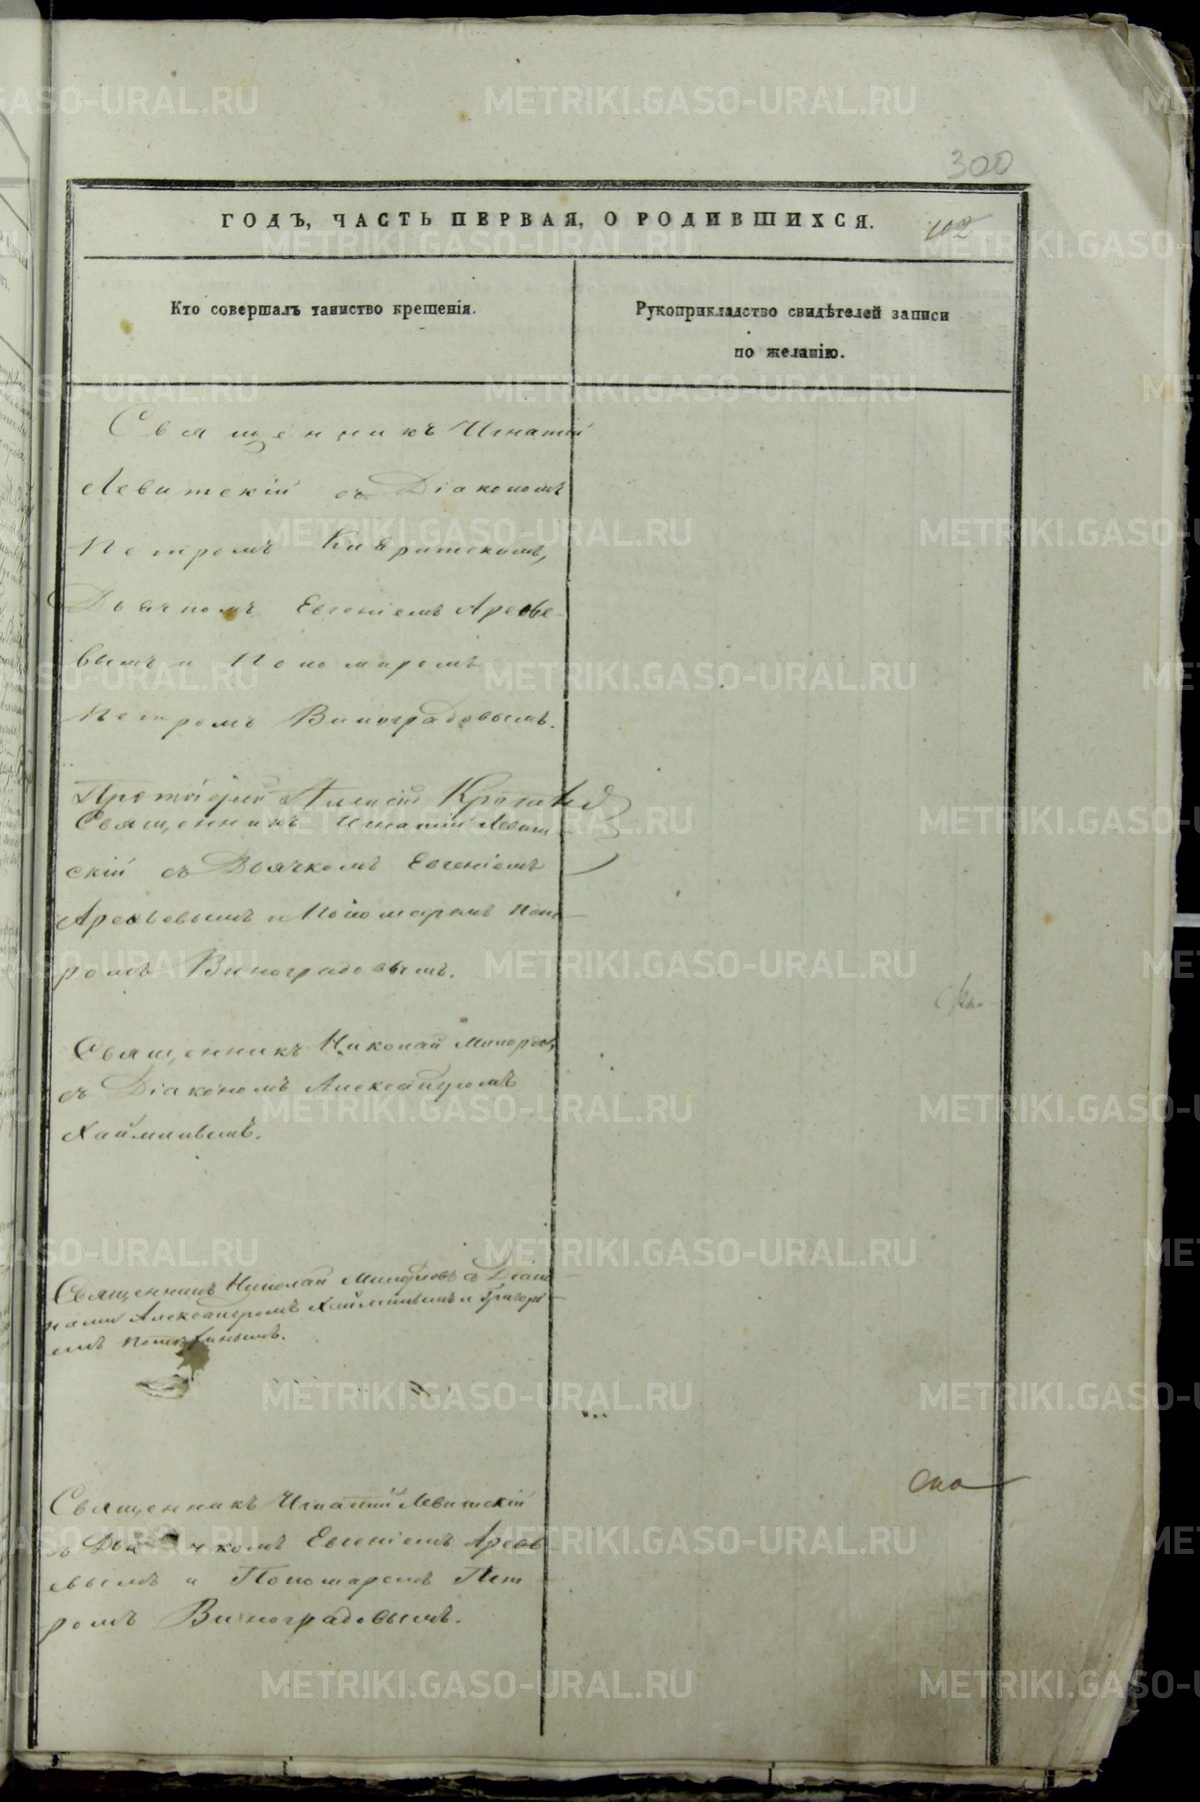 300
ГОДЪ, ЧАСТЬ ПЕРВАЯ, О РОДИВШИХСЯ.
102
Кто совершалъ таинство крещенія.
Рукоприкладство свидѣтелей записи
по желанію.
Священникъ Игнатій
Левитскій съ Діакономъ
Петромъ
Дьячкомъ Евгеніемъ Арефье
вымъ и Пономаремъ
Петромъ Виноградовымъ.
Протоіерей Алексій
Священникъ Игнатій Левит
скій съ Дьячкомъ Евгеніемъ
Арефьевымъ и Пономаремъ Пет
ромъ Виноградовымъ.
Священникъ Николай
съ Діакономъ Александромъ
Священникъ Николай съ Діако
нами Александромъ и Григорі
емъ
Священникъ Игнатій Левитскій
съ Дьячкомъ Евгеніемъ Арефь
евымъ и Пономаремъ Пет
ромъ Виноградовымъ.
METRIKI.GASO-URAL.RU